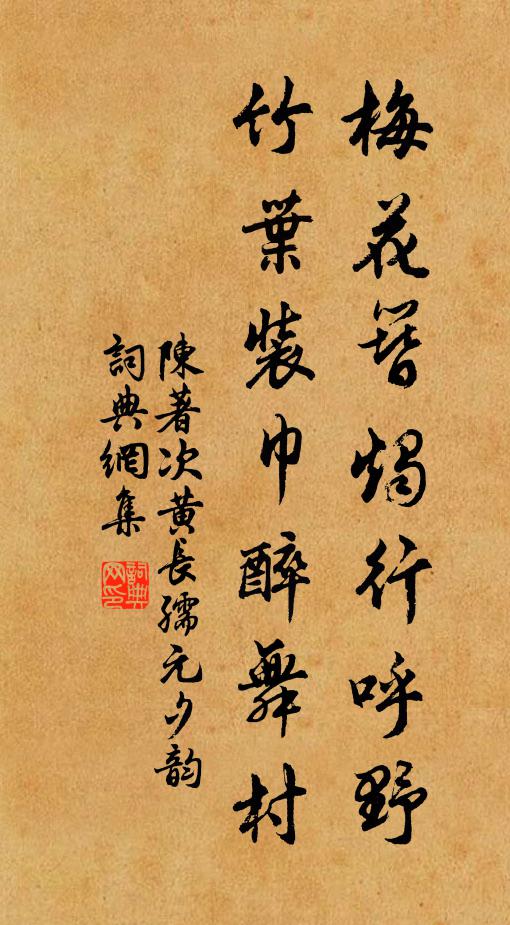 梅花簪燭行呼野
竹葉裝巾醉舞村
陳著次黄長孺元夕韵
詞典網集
詞典網印